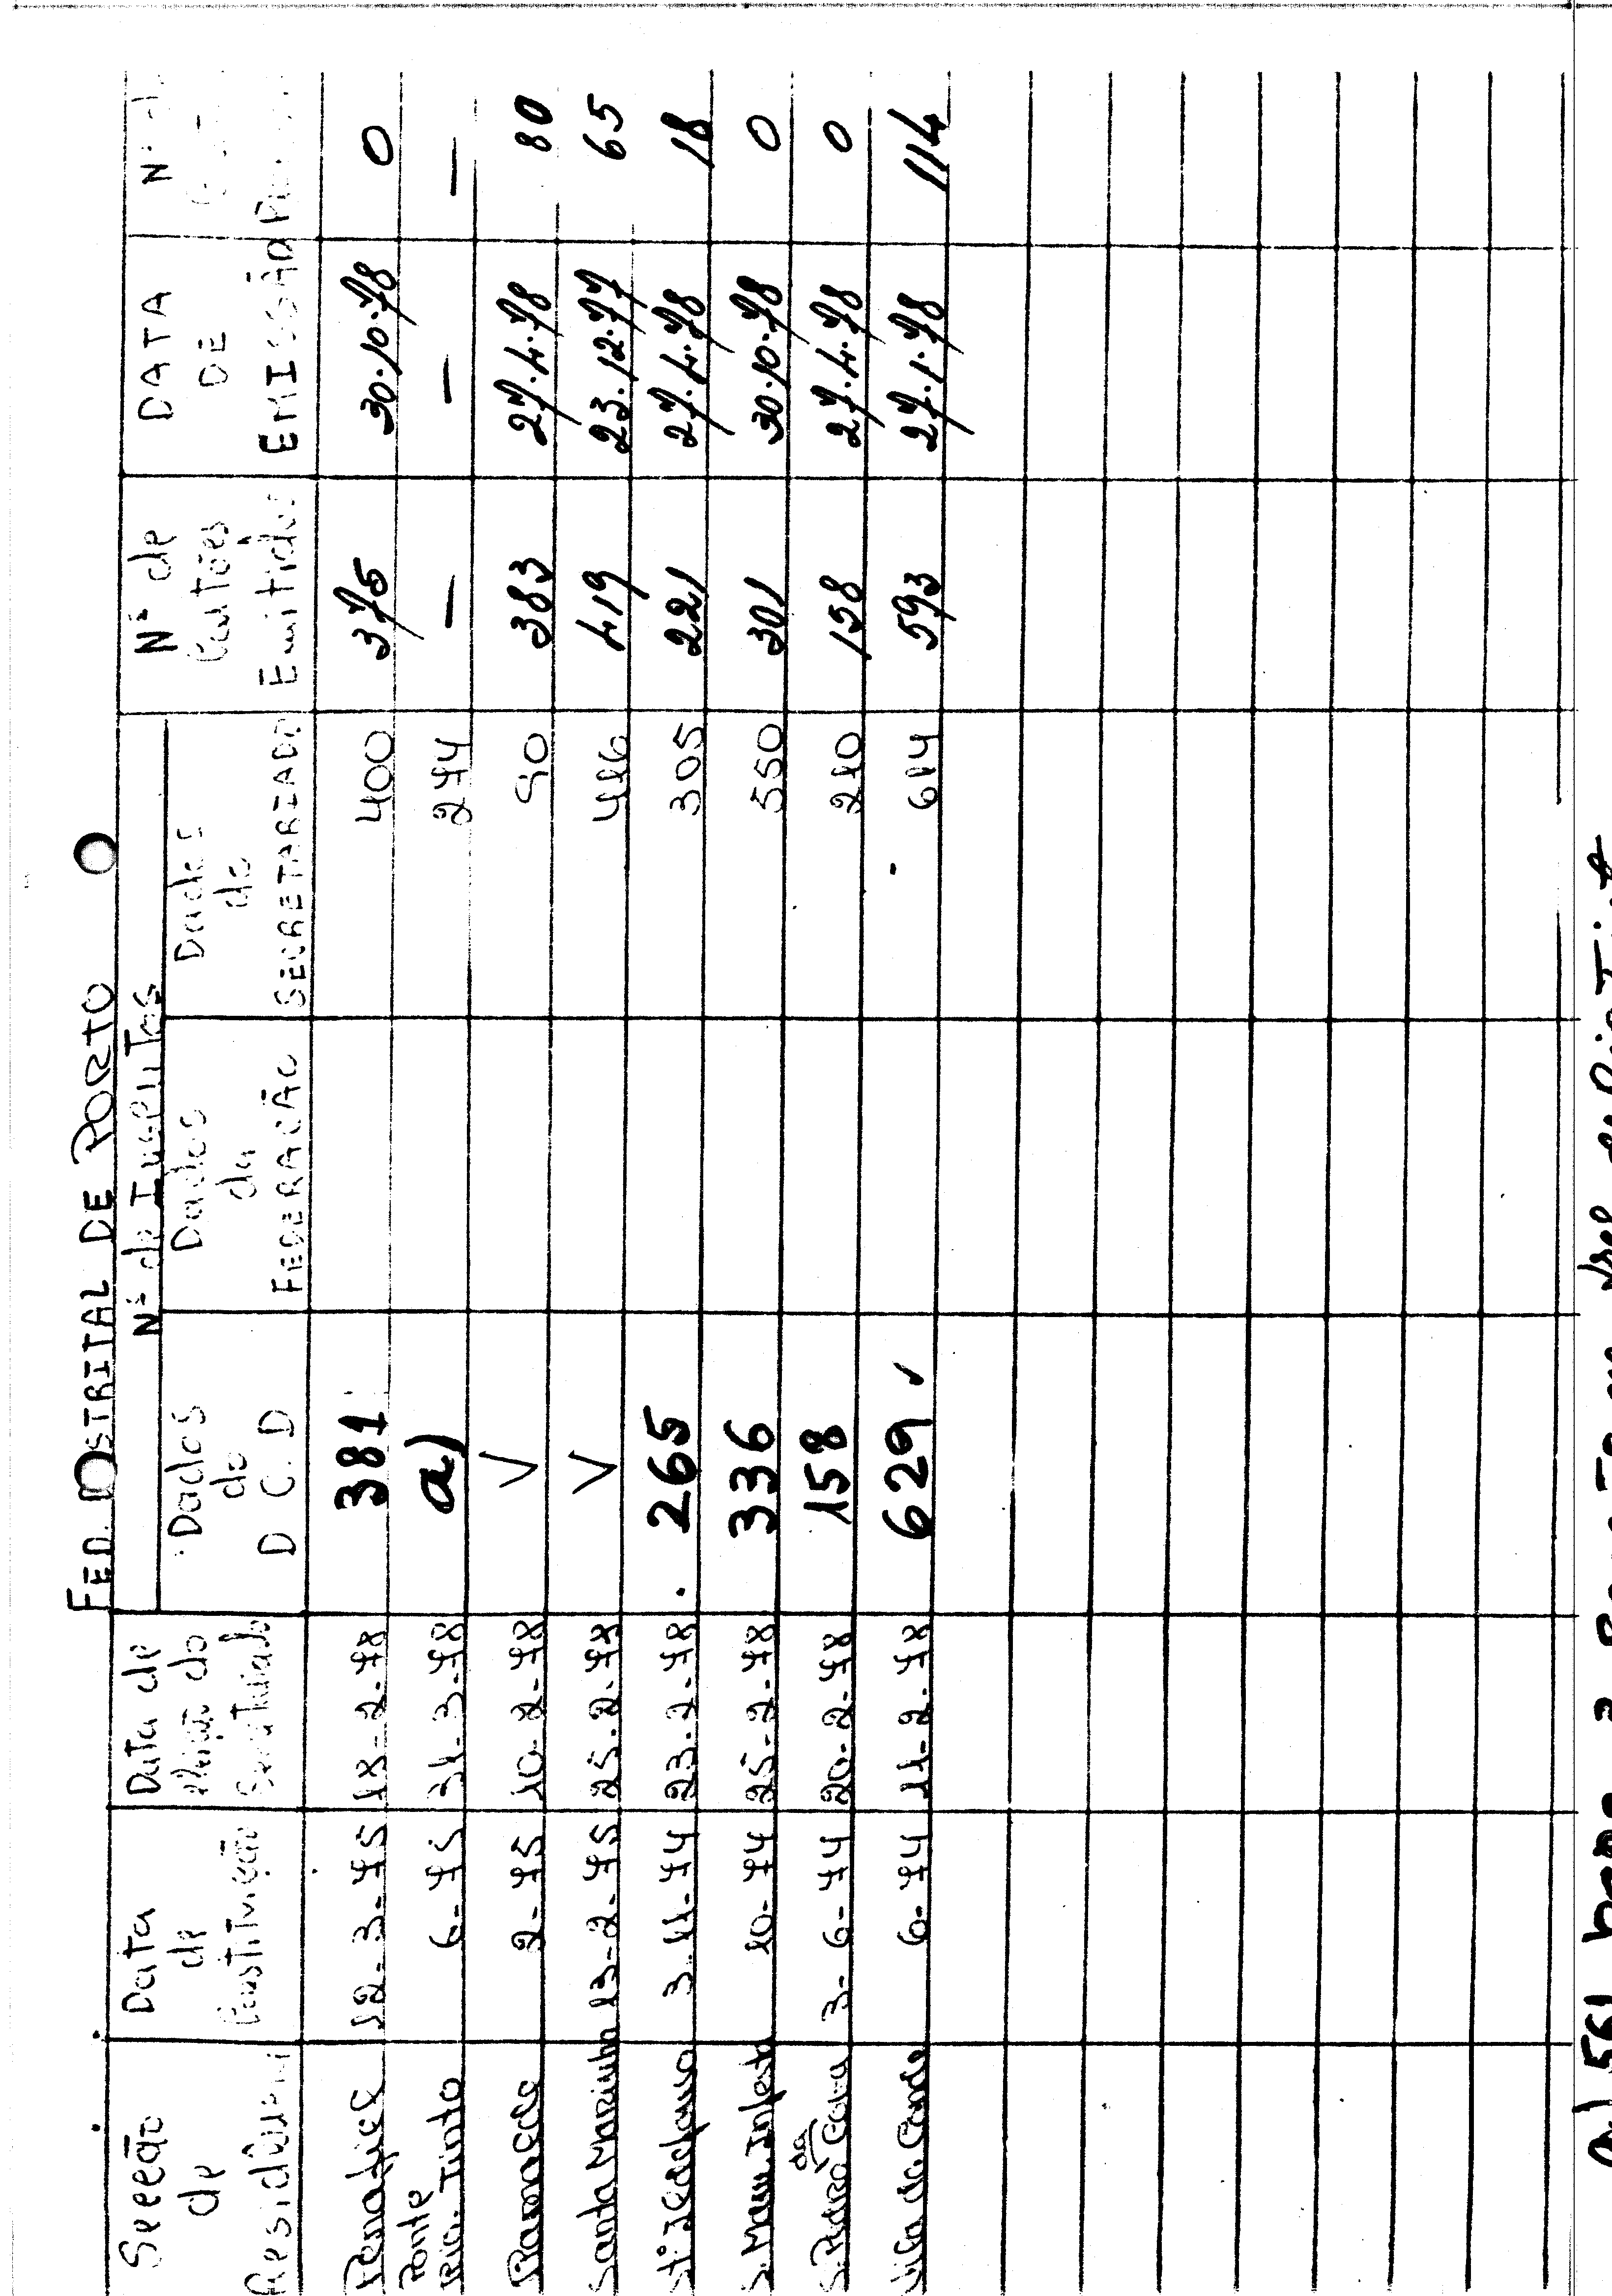 FED. DISTRITAL DE PORTO
Secção de Residência | Data de Constituição | Data de eleição do Secretariado | Nº de Inscritos | Nº de Cartões Emitidos | DATA DE EMISSÃO | Nº
Dados do D C D | Dados da FEDERAÇÃO | Dados do SECRETARIADO
Penafiel 12-3-75 18-2-78 381 400 375 30.10.78 0
Ponte
Rio. Tinto 6-75 31-3-78 a) 274 — — —
Ramalde 2-75 10-2-78 V 90 383 27.4.78 80
Santa Marinha 13-2-75 25.2-78 V 446 419 23.12.77 65
Stº Ildefonso 3.11-74 23.2-78 . 265 305 221 27.4.78 18
S. Mam. Infesta 10-74 25-2-78 336 550 301 30.10.78 0
S. Pedro da Cova 3-6-74 20-2-78 158 210 158 27.4.78 0
Vila do Conde 6-74 11-2-78 629 614 593 27.1.78 114
a) 561 para a